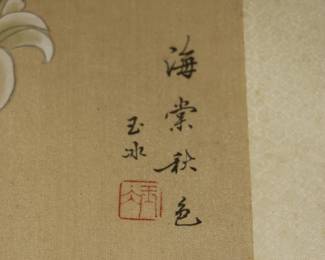 海棠秋色
玉冰